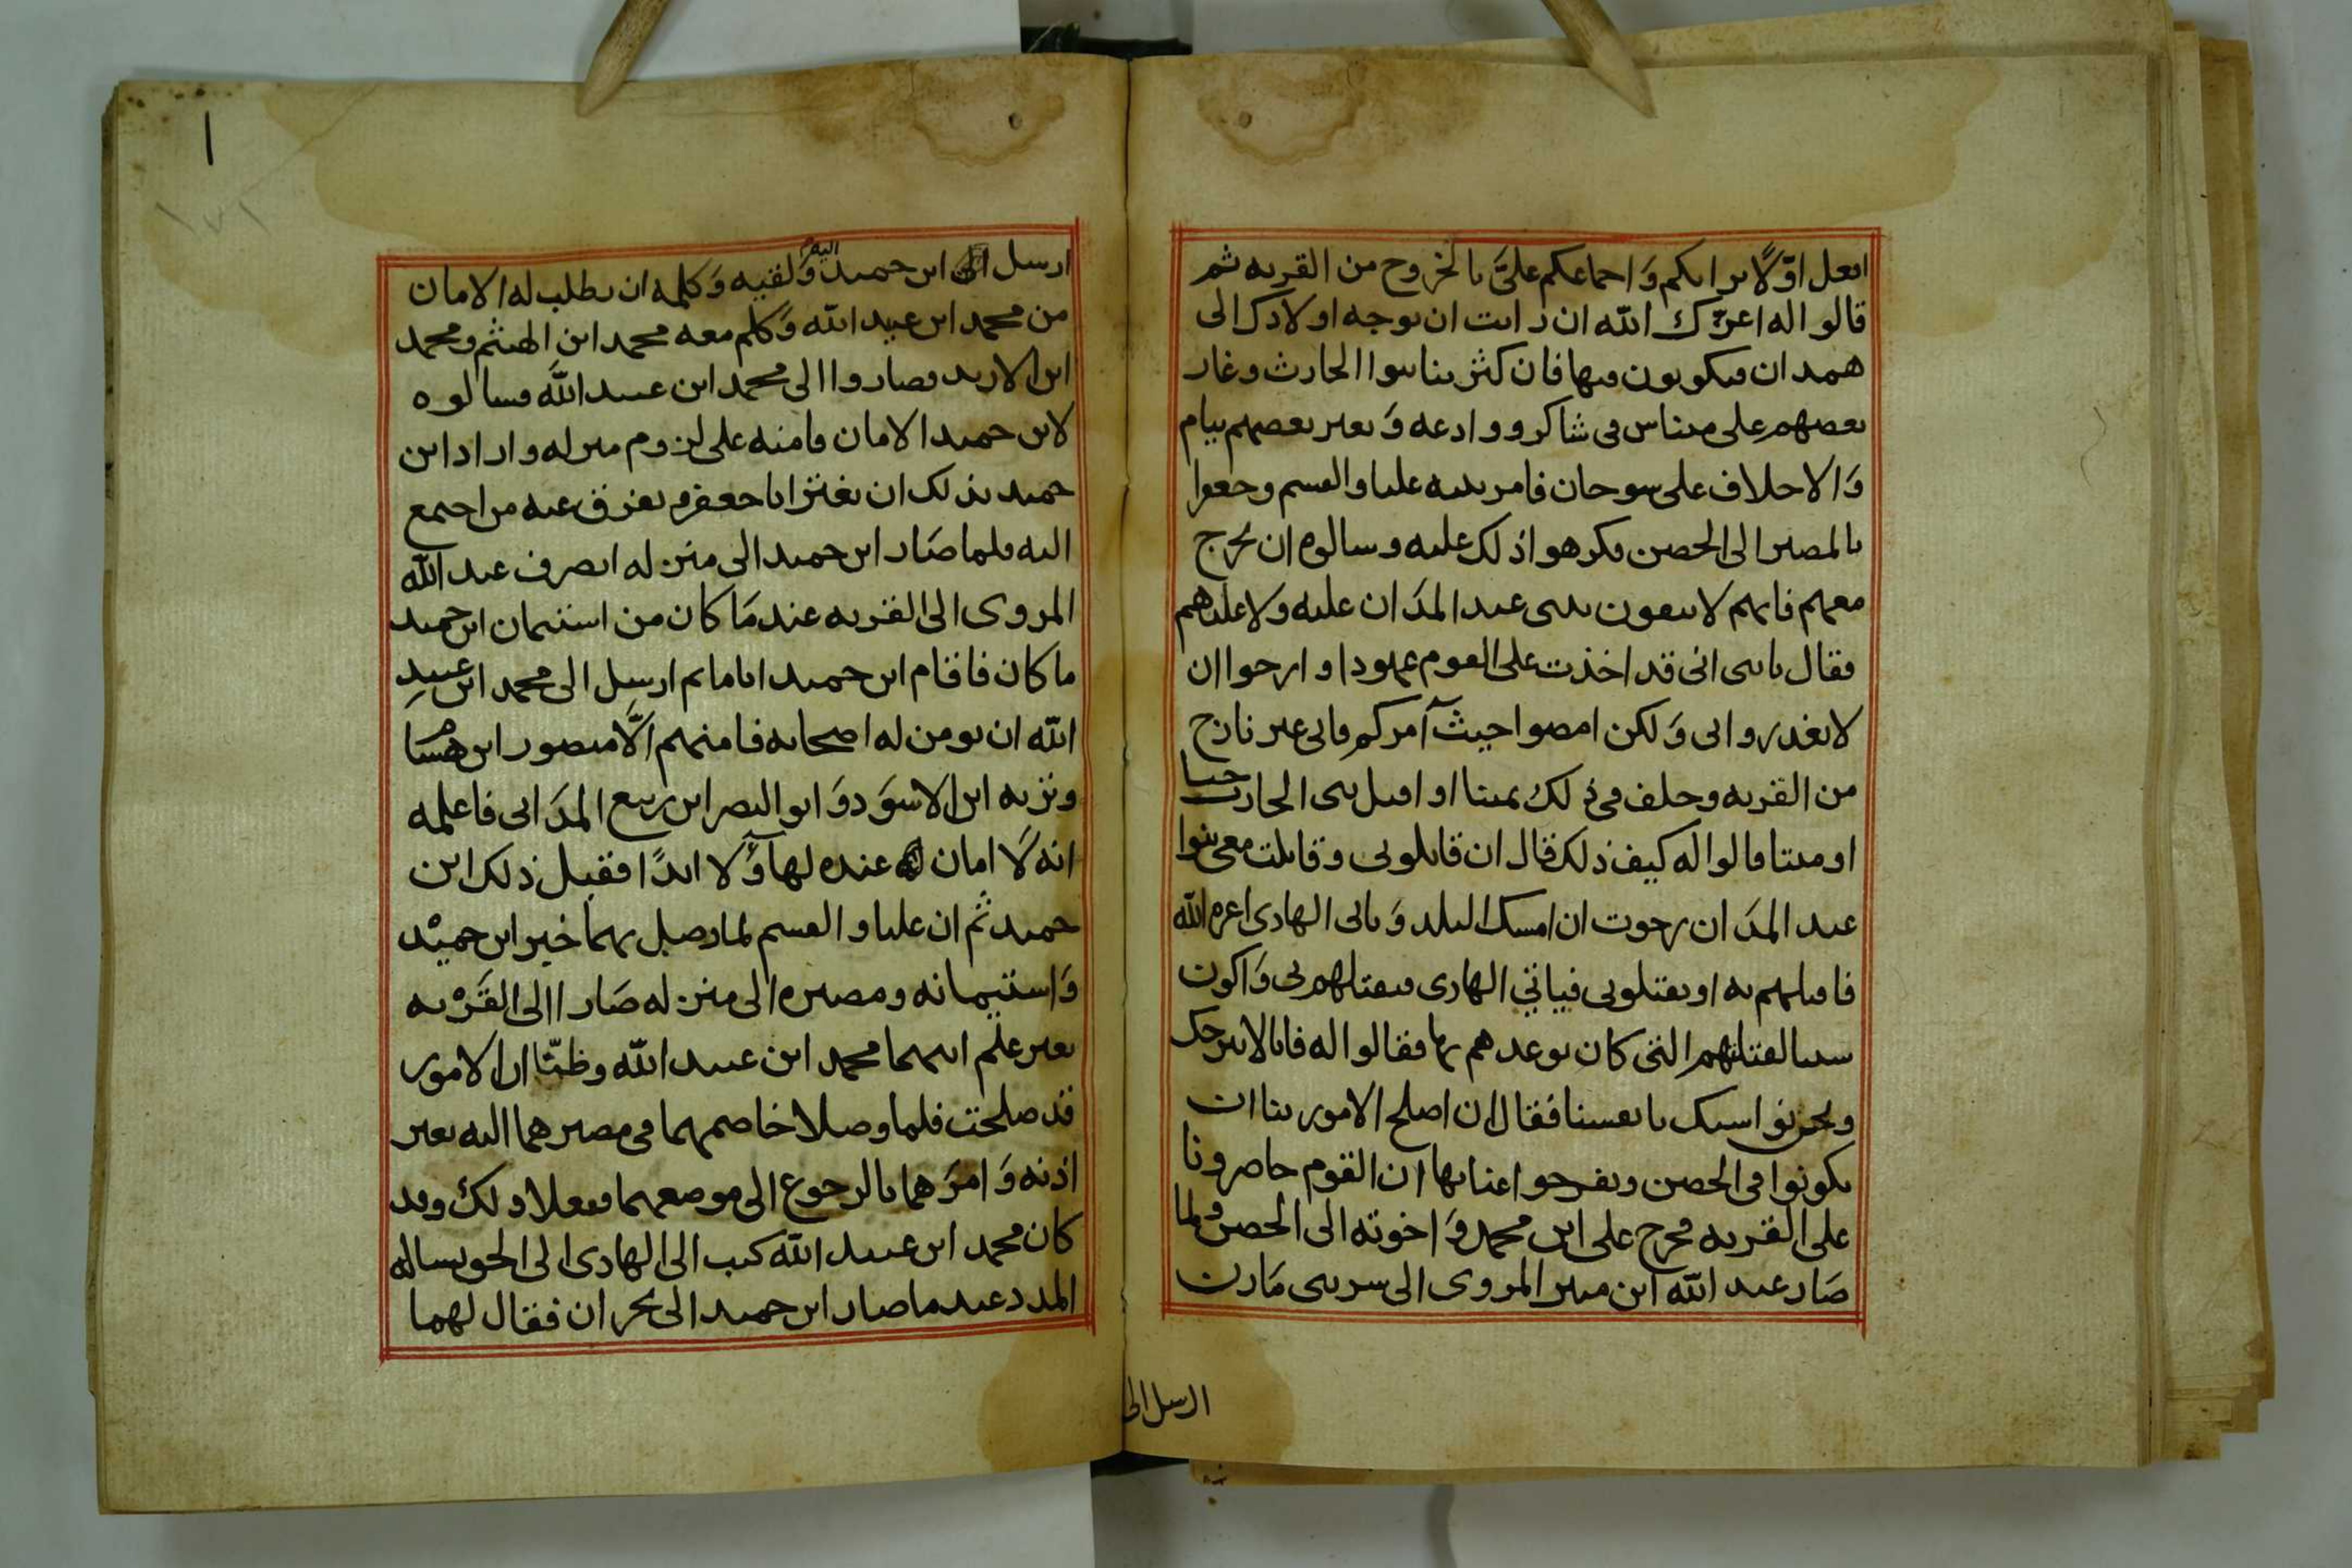 افعل اوّلًا برايكم وَاجماعكم علىَّ بالخروج من القريه ثم
قالوا له اعزّك الله ان رايت ان توجه اولادك الى
همدان فيكونون فيها فان كثر بنا بنوا الحارث وغار
بعضهم على مىناس فى شاكر ووادعه وَبعير بعضهم بيام
وَالاحلاف على سوحان فامر بنيه عليا والقسم وجعفرا
بالمصير الى الحصن فكرهوا ذلك عليه وسالوه ان يخرج
معهم فانهم لا يثقون ببنى عبد المدَان عليه ولا عليهم
فقال يا بنى انى قد اخذت على القوم عهودا وارجوا ان
لا يغدروا بى وَلكن امضوا حيث آمركم فانى غير نازح
من القريه وحلف فى ذلك يمينا او اقبل بنى الحارث حيا
او ميتا قالوا له كيف ذلك قال ان قاتلونى وقاتلت معى بنوا
عبد المدَان رجوت ان امسك البلد وَياتى الهادى اعزه الله
فاقتلهم به او يقتلونى فياتي الهادى فيقتلهم بى وَاكون
سببا لقتلتهم التى كان يوعدهم بها فقالوا له فانا لا نبرحك
ونحن نواسيك بانفسنا فقال ان اصلح الامور بنا ان
تكونوا فى الحصن وتفرجوا عنا بها ان القوم حاصرونا
على القريه فخرج على ابن محمد وَاخوته الى الحصن ولما
صَار عبد الله ابن مبير المروى الى سر بنى مَازن
ارسل الى
ارسل ابن حميد اليه وَلقيه وَكلمه ان يطلب له الامان
من محمد ابن عبيد الله وَكلم معه محمد ابن الهيثم ومحمد
ابن الاريد فصاروا الى محمد ابن عبيد الله فسالوه
لابن حميد الامان فامنه على لزوم منزله واراد ابن
حميد بذلك ان يغتر ابا جعفر ويفرق عنه من اجتمع
اليه فلما صَار ابن حميد الى منزله انصرف عبد الله
المروى الى القريه عندمَا كان من استيمان ابن حميد
ما كان فاقام ابن حميد اياما ثم ارسل الى محمد ابن عبيد
الله ان يومن له اصحابه فامنهم الَّا منصور ابن
ونزيه ابن الاسوَد وَابو النصر ابن ربيع المدَانى فاعلمه
انه لَا امان عنده لهاؤلآ ابدًا فقبل ذلك ابن
حميد ثم ان عليا والقسم لما وصل بهما خبر ابن حميْد
وَاستيمانه ومصيره الى منزله صَارا الى القَرْيه
بغير علم ابيهما محمد ابن عبيد الله وظنّا ان الامور
قد صلحت فلما وصلا خاصمهما فى مصيرهما اليه بغير
اذنه وَامرَهما بالرجوع الى موضعهما ففعلا ذلك وقد
كان محمد ابن عبيد الله كتب الى الهادى الى الحق يساله
المدد عندما صار ابن حميد الى نجران فقال لهما